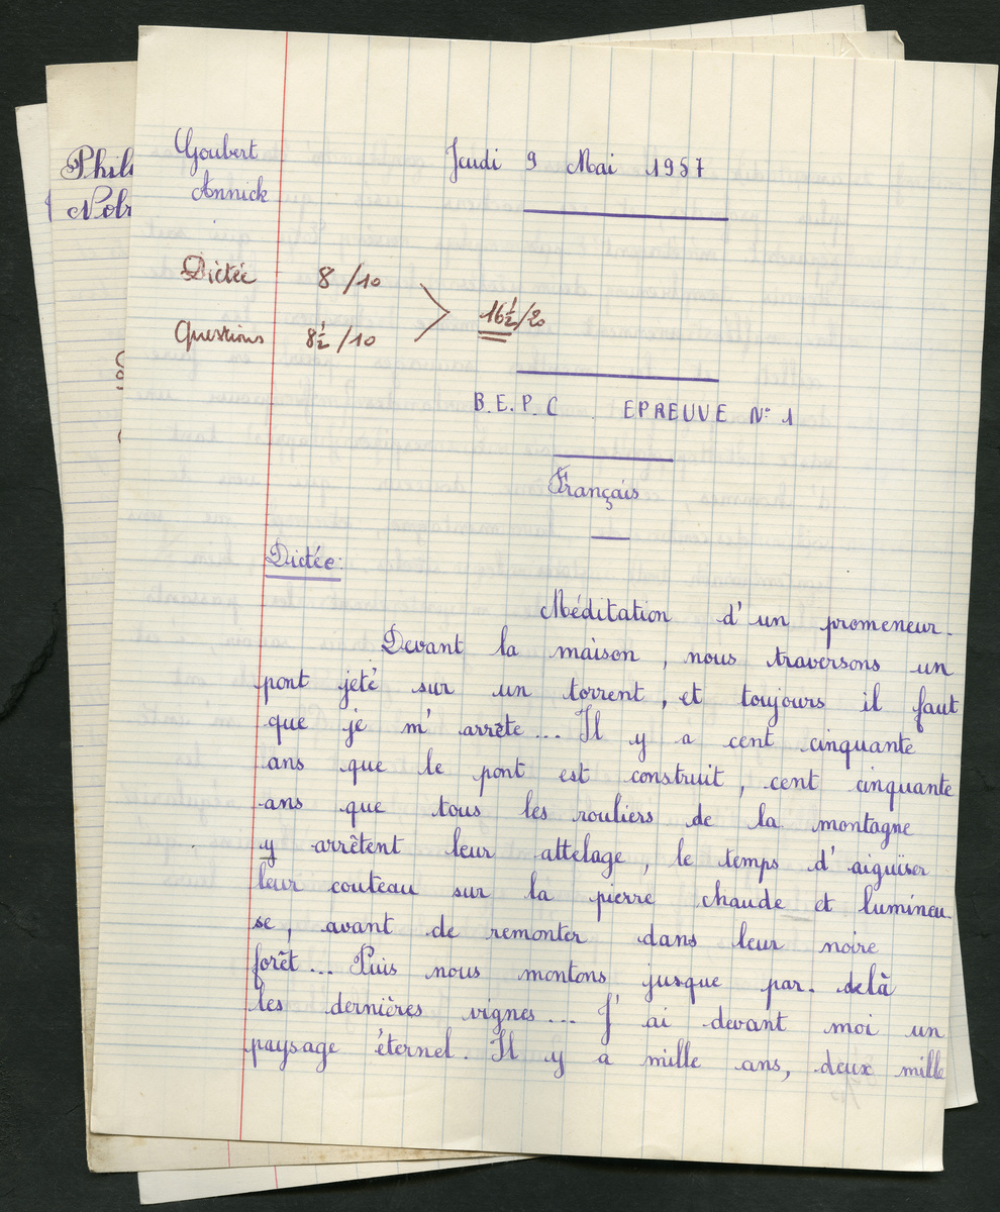 Phil
Nobr
Goubert
Annick
Jeudi 9 Mai 1957
Dictée 8/10
Questions 8 1/2 /10
16 1/2 /20
B.E.P.C. EPREUVE N° 1
Français
Dictée:
Méditation d'un promeneur.
Devant la maison, nous traversons un
pont jeté sur un torrent, et toujours il faut
que je m'arrête... Il y a cent cinquante
ans que le pont est construit, cent cinquante
ans que tous les rouliers de la montagne
y arrêtent leur attelage, le temps d'aiguïser
leur couteau sur la pierre chaude et lumineu
se, avant de remonter dans leur noire
forêt... Puis nous montons jusque par-delà
les dernières vignes... J'ai devant moi un
paysage éternel. Il y a mille ans, deux mille